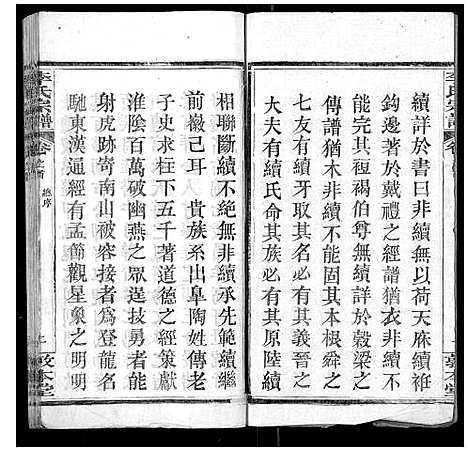 續詳於書曰非續無以荷天庥續袵
鉤邊著於戴禮之經譜猶衣非續不
能完其裋褐伯尊無續詳於穀梁之
傳譜猶木非續不能固其本根舜之
七友有續牙取其名必有其義晉之
大夫有續氏命其族必有其原陸續
相聯斷續不絕無非續承先範續繼
前徽已耳　貴族系出臯陶姓傳老
子史求柱下五千著道德之經策獻
淮陰百萬破幽燕之眾逞技勇者能
射虎跡寄南山被容接者爲登龍名
馳東漢通經有孟節觀星象之明明
李氏宗譜
卷之首
總序
上
敦本堂